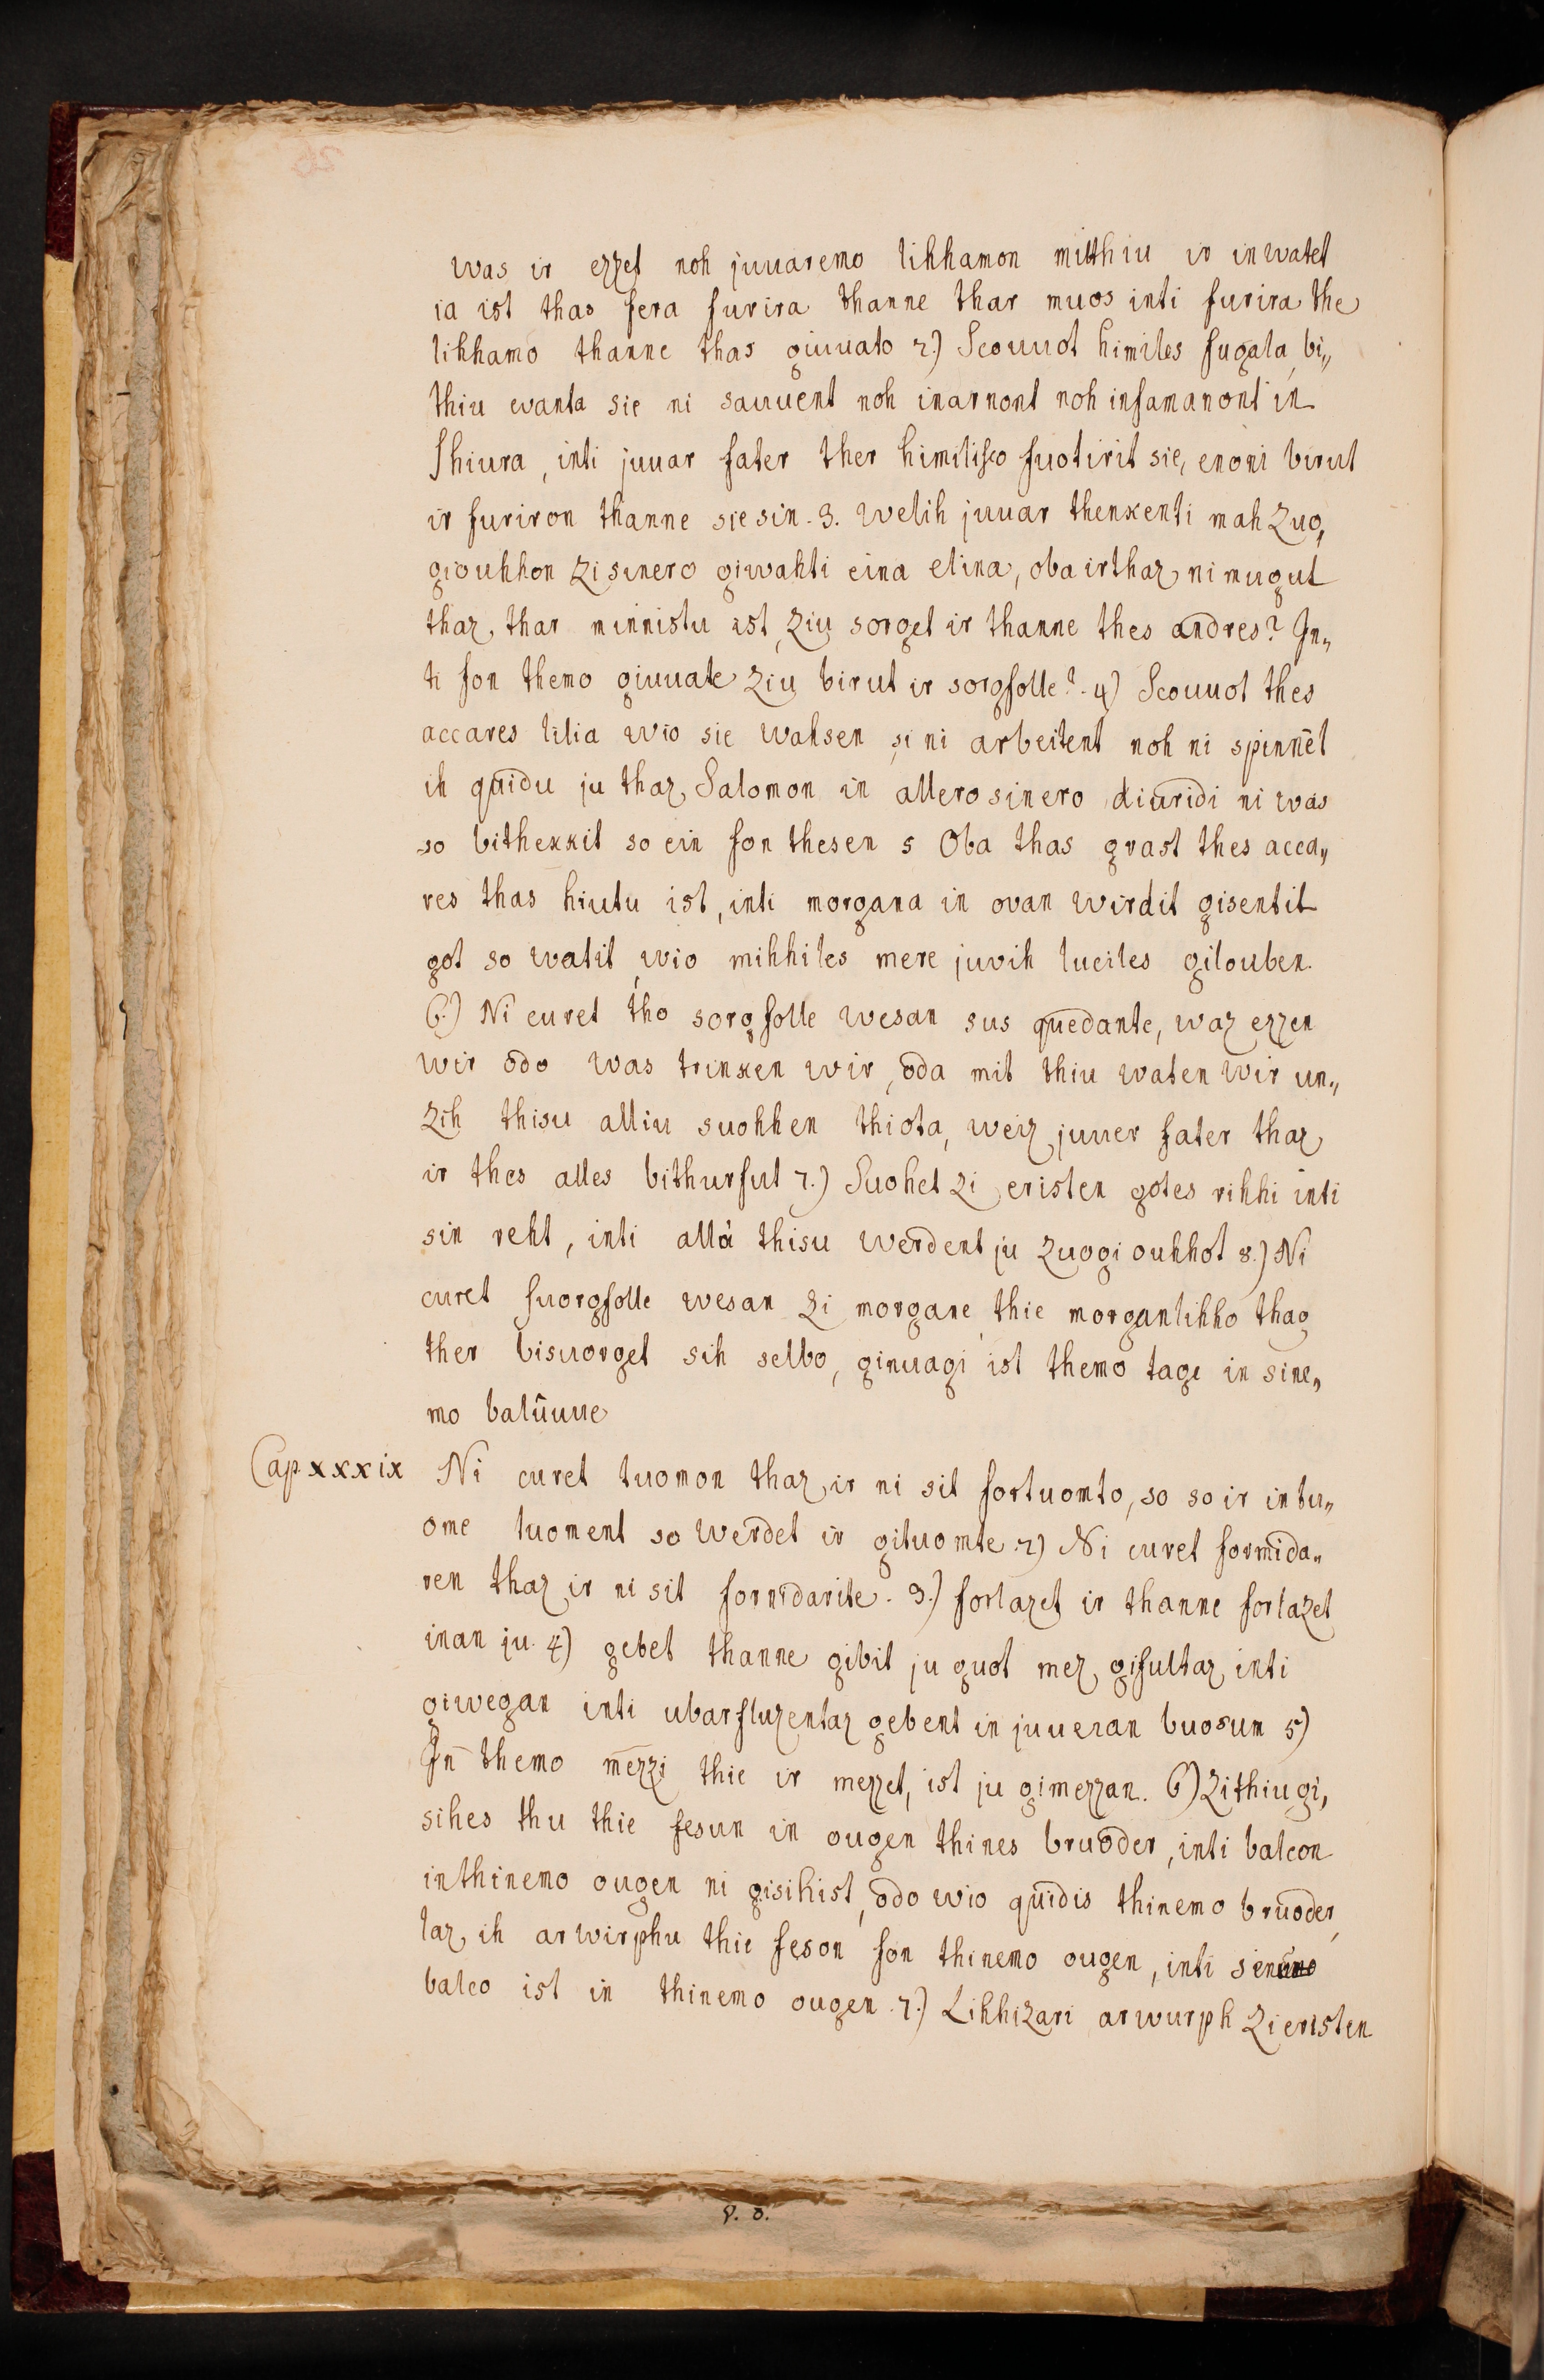 was ir ezzet noh juuaremo lihhamon mitthiu ir inwatet
ia ist thas fera furira thanne thar muos inti furira the
lihhamo thanne thas giuuato 2.) Scouuot himiles fugala, bi„
thiu wanta sie ni sauuent noh inarnont noh insamanont in
Shiura, inti juuar fater ther himilisco fuotirit sie, enoni birut
ir furiron thanne sie sin. 3. welih juuar thenkenti mah zuo„
giouhhon zi sinero giwahti eina elina, oba ir thaz ni mugut
thaz, thar minnistu ist, ziu sorget ir thanne thes andres? In„
ti fon themo giuuate ziu birut ir sorgfolle? 4) Scouuot thes
accares lilia wio sie wahsen, si ni arbeitent noh ni spinnēt
ih quidu ju thaz Salomon in allero sinero diuridi ni was
so bithekkit so ein fon thesen 5 Oba thas grast thes acca„
res thas hiutu ist, inti morgana in ovan wirdit gisentit
got so watit, wio mihhiles mere juvih luciles gilouben.
6.) Ni curet tho sorgfolle wesan sus quedante, waz ezzen
wir odo was trinken wir, oda mit thiu waten wir un„
zih thisu alliu suohhen thiota, weiz juuer fater thaz
ir thes alles bithurfut 7.) Suohet zi eristen gotes rihhi inti
sin reht, inti allà thisu werdent ju zuogi ouhhot 8.) Ni
curet suorgfolle wesan zi morgane, thie morganlihho thag
ther bisuorget sih selbo, ginuagi ist themo tage in sine„
mo balûuue
Cap. xxxix Ni curet tuomon thaz ir ni sit fortuomto, so so ir in tu„
ome tuoment so werdet ir gituomte. 2) Ni curet formida„
ren thaz ir ni sit fornidarite. 3.) forlazet ir thanne forlazet
inan ju. 4) gebet thanne gibit ju guot mez, gifultaz inti
giwegan inti ubarfluzentaz gebent in juueran buosun 5)
In themo mezzi thie ir mezzet, ist ju gimezzan. 6) Zithiu gi„
sihes thu thie fesun in ougen thines bruoder, inti balcon
in thinemo ougen ni gisihist, odo wio quidis thinemo bruoder,
laz ih arwirphu thie feson fon thinemo ougen, inti senu
balco ist in thinemo ougen. 7.) Lihhizari arwurph zi eristen